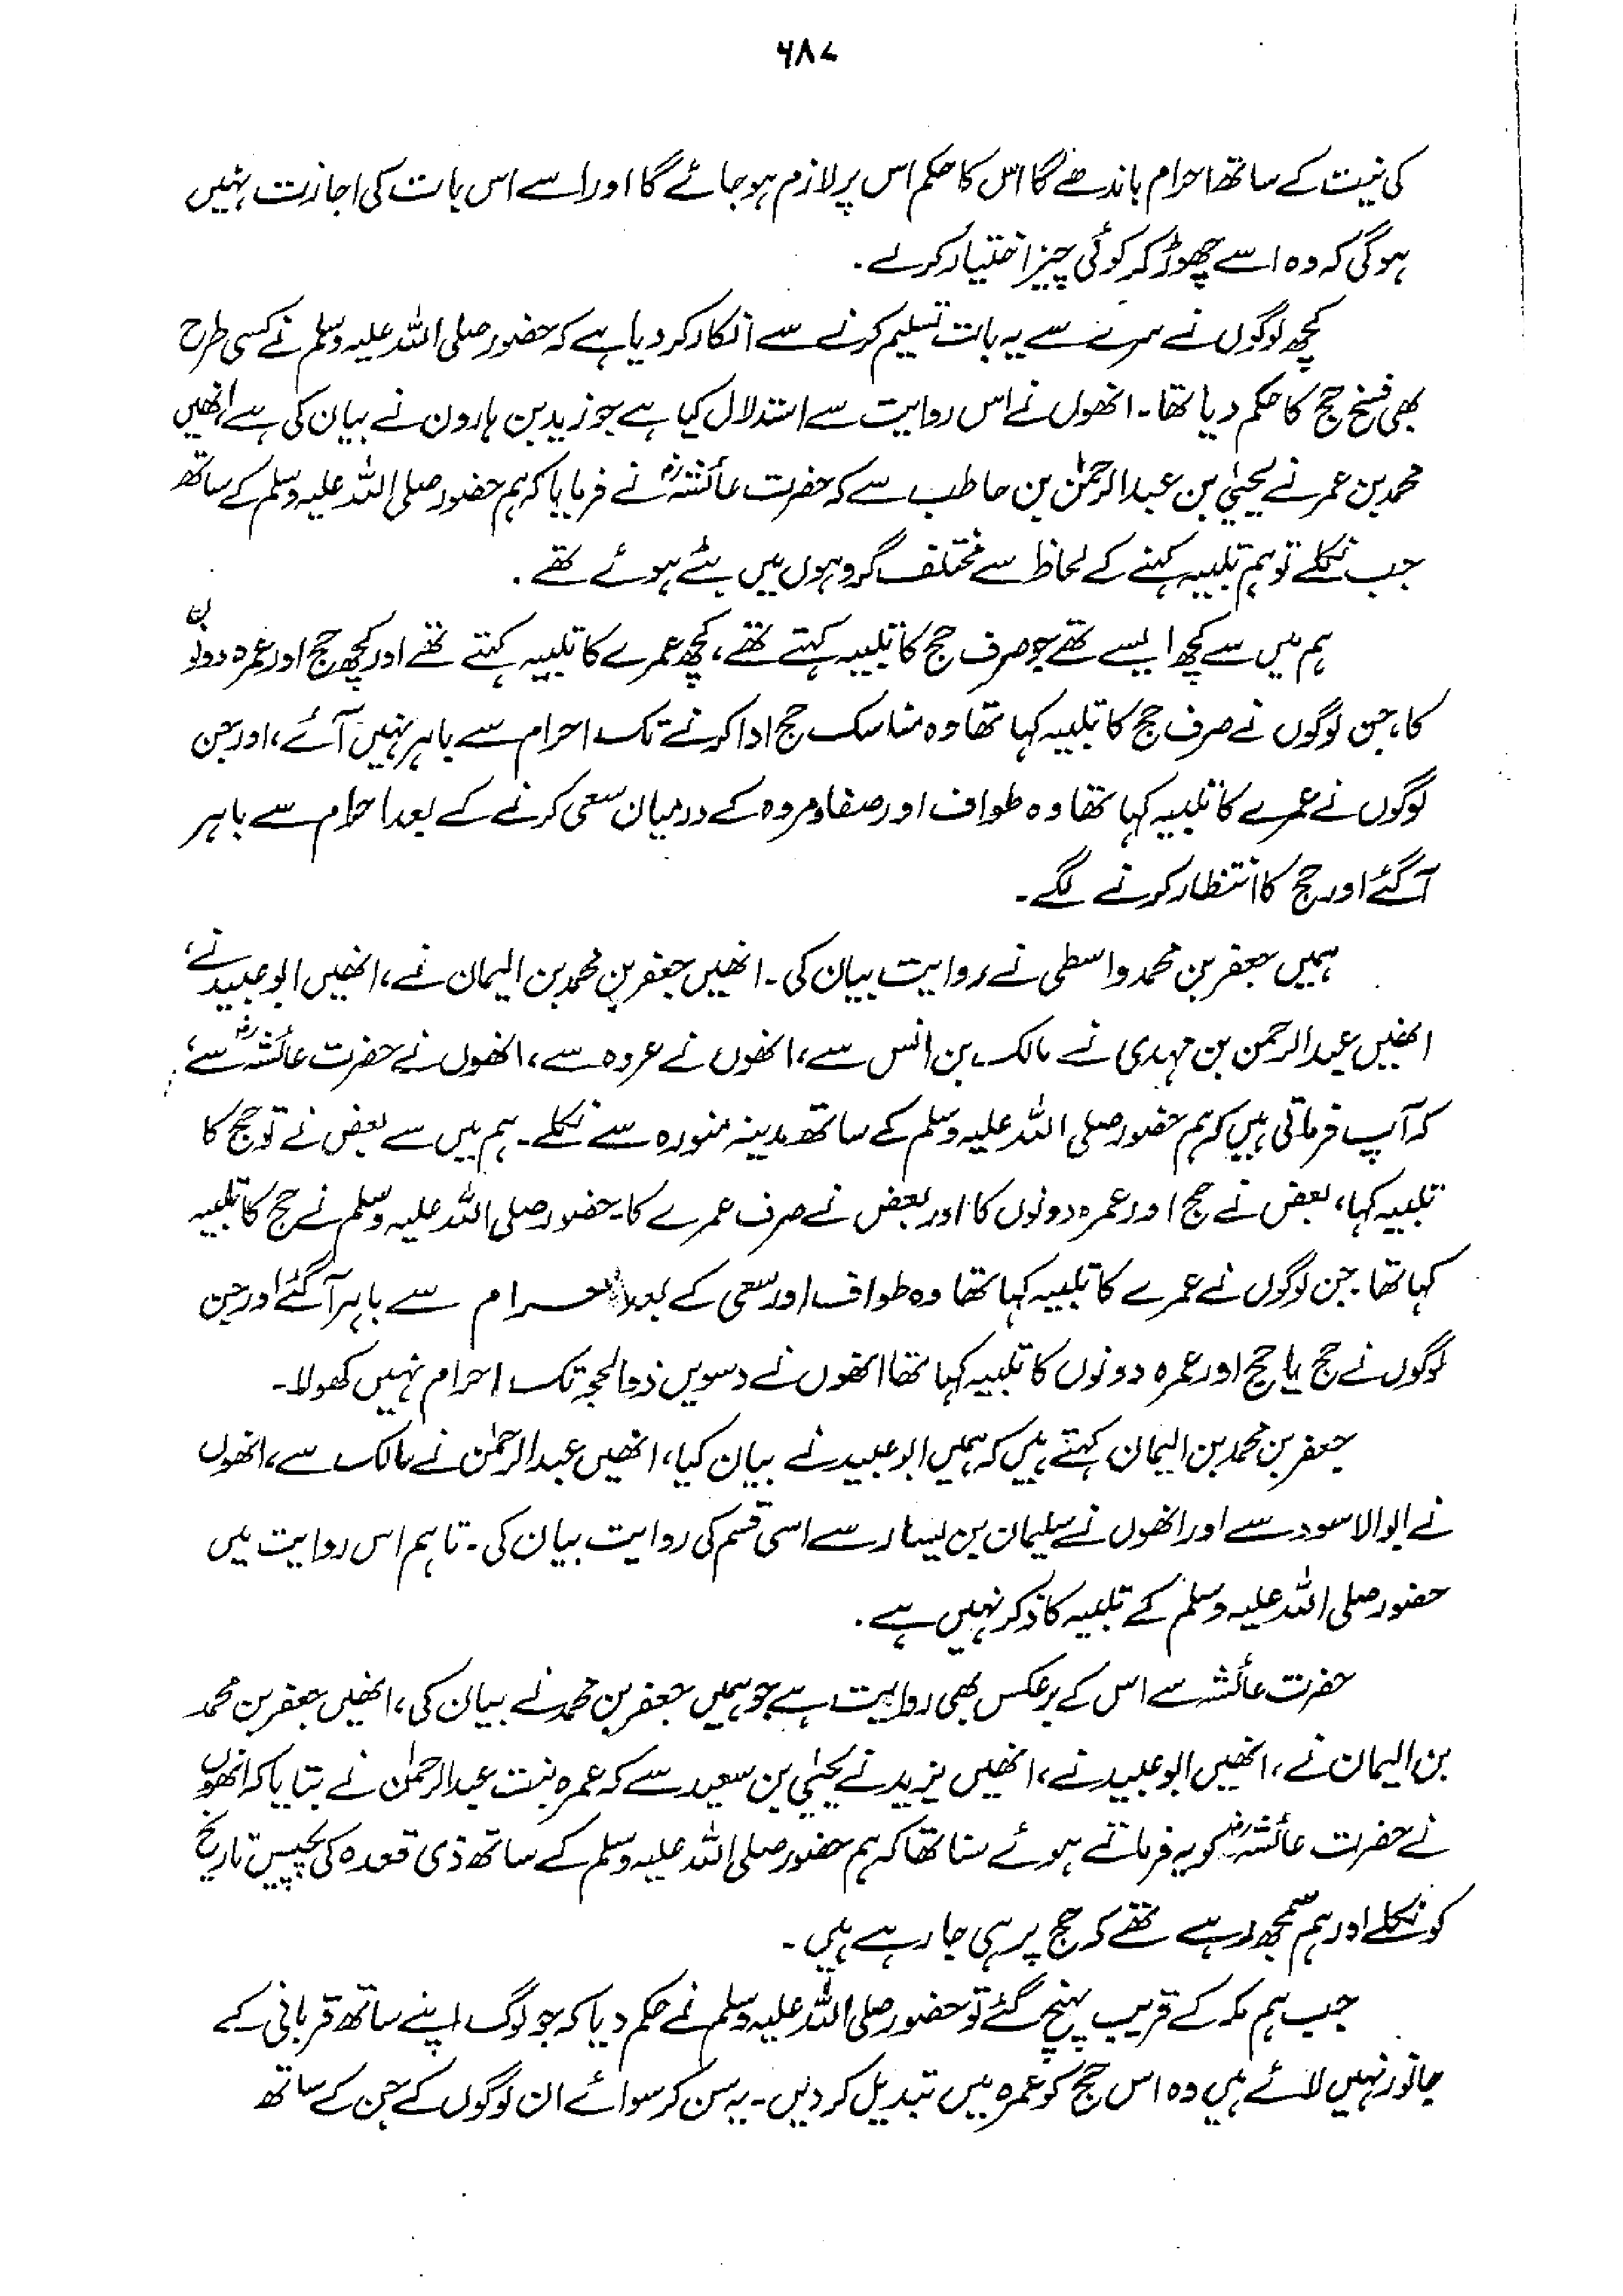 ۶۸۷
کی نیت کے ساتھ احرام باندھے گا اس کا حکم اس پر لازم ہو جائے گا اور اسے اس بات کی اجازت نہیں
ہوگی کہ وہ اسے چھوڑ کر کوئی چیز اختیار کرلے۔
کچھ لوگوں نے سرے سے یہ بات تسلیم کرنے سے انکار کر دیا ہے کہ حضور صلی اللہ علیہ وسلم نے کسی طرح
بھی فسخ حج کا حکم دیا تھا۔ انھوں نے اس روایت سے استدلال کیا ہے جو زید بن ہارون نے بیان کی ہے انھیں
محمد بن عمر نے یحییٰ بن عبدالرحمٰن بن حاطب سے کہ حضرت عائشہؓ نے فرمایا کہ ہم حضور صلی اللہ علیہ وسلم کے ساتھ
جب نکلے تو ہم تلبیہ کہنے کے لحاظ سے مختلف گروہوں میں بٹے ہوئے تھے۔
ہم میں سے کچھ ایسے تھے جو صرف حج کا تلبیہ کہتے تھے، کچھ عمرے کا تلبیہ کہتے تھے اور کچھ حج اور عمرہ دونوں
کا، جن لوگوں نے صرف حج کا تلبیہ کہا تھا وہ مناسک حج ادا کرنے تک احرام سے باہر نہیں آئے، اور جن
لوگوں نے عمرے کا تلبیہ کہا تھا وہ طواف اور صفا و مروہ کے درمیان سعی کرنے کے بعد احرام سے باہر
آگئے اور حج کا انتظار کرنے لگے۔
ہمیں جعفر بن محمد واسطی نے روایت بیان کی۔ انھیں جعفر بن محمد بن الیمان نے، انھیں ابو عبید نے،
انھیں عبدالرحمن بن مہدی نے مالک بن انس سے، انھوں نے عروہ سے، انھوں نے حضرت عائشہؓ سے،
کہ آپ فرماتی ہیں کہ ہم حضور صلی اللہ علیہ وسلم کے ساتھ مدینہ منورہ سے نکلے۔ ہم میں سے بعض نے تو حج کا
تلبیہ کہا، بعض نے حج اور عمرہ دونوں کا اور بعض نے صرف عمرے کا۔ حضور صلی اللہ علیہ وسلم نے حج کا تلبیہ
کہا تھا۔ جن لوگوں نے عمرے کا تلبیہ کہا تھا وہ طواف اور سعی کے بعد احرام سے باہر آگئے اور جن
لوگوں نے حج یا حج اور عمرہ دونوں کا تلبیہ کہا تھا انھوں نے دسویں ذوالحجہ تک احرام نہیں کھولا۔
جعفر بن محمد بن الیمان کہتے ہیں کہ ہمیں ابو عبید نے بیان کیا، انھیں عبدالرحمٰن نے مالک سے، انھوں
نے ابوالاسود سے اور انھوں نے سلیمان بن یسار سے اسی قسم کی روایت بیان کی۔ تاہم اس روایت میں
حضور صلی اللہ علیہ وسلم کے تلبیہ کا ذکر نہیں ہے۔
حضرت عائشہ سے اس کے برعکس بھی روایت ہے جو ہمیں جعفر بن محمد نے بیان کی، انھیں جعفر بن محمد
بن الیمان نے، انھیں ابو عبید نے، انھیں یزید نے یحییٰ بن سعید سے کہ عمرہ بنت عبدالرحمٰن نے بتایا کہ انھوں
نے حضرت عائشہؓ کو یہ فرماتے ہوئے سنا تھا کہ ہم حضور صلی اللہ علیہ وسلم کے ساتھ ذی قعدہ کی پچیس تاریخ
کو نکلے اور ہم سمجھ رہے تھے کہ حج پر ہی جا رہے ہیں۔
جب ہم مکہ کے قریب پہنچ گئے تو حضور صلی اللہ علیہ وسلم نے حکم دیا کہ جو لوگ اپنے ساتھ قربانی کے
جانور نہیں لائے ہیں وہ اس حج کو عمرہ میں تبدیل کر دیں۔ یہ سن کر سوائے ان لوگوں کے جن کے ساتھ